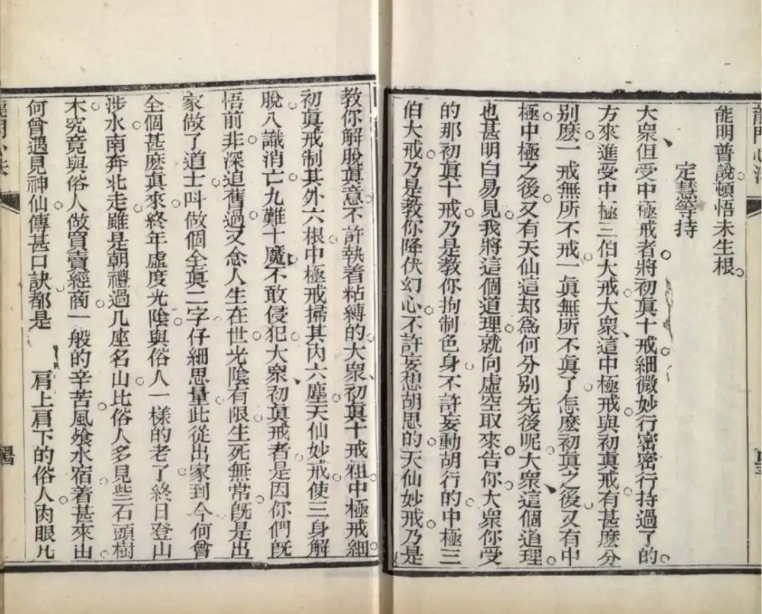 龍門心法
能明普說頓悟未生根
定慧等持
大衆但受中極戒者將初眞十戒細微妙行密密行持過了的
方來進受中極三伯大戒大衆這中極戒與初眞戒有甚麽分
别麽一戒無所不戒一眞無所不眞了怎麽初眞之後又有中
極中極之後又有天仙這却爲何分别先後呢大衆這個道理
也甚明白易見我將這個道理就向虛空取來告你大衆你受
的那初眞十戒乃是教你拘制色身不許妄動胡行的中極三
伯大戒乃是教你降伏幻心不許妄想胡思的天仙妙戒乃是
教你解脫眞意不許執着枯縛的大衆初眞十戒粗中極戒細
初眞戒制其外六根中極戒掃其内六塵天仙妙戒使三身解
脫八識消亡九難十魔不敢侵犯大衆初眞戒者是因你們旣
悟前非深追舊過又念人生在世光陰有限生死無常旣是出
家做了道士呌做個全眞二字仔細思量此從出家到今何曾
全個甚麽眞來終年虛度光陰與俗人一樣的老了終日登山
涉水南奔北走雖是朝禮過几座名山比俗人多見些石頭樹
木究竟與俗人做買賣經商一般的辛苦風飧水宿着甚來由
何曾遇見神仙傳甚口訣都是 肩上肩下的俗人肉眼凡
龍門心法